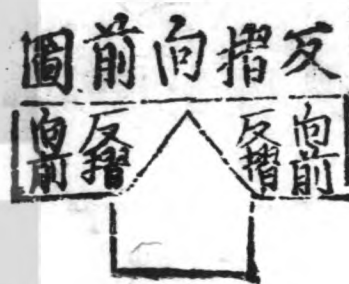 反摺向前圖
向前
反摺
反摺
向前